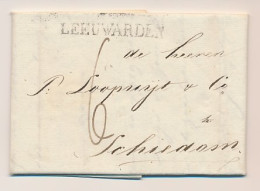 LEEUWARDEN
de heeren
P. Loopuijt & Co
6
te
Schiedam.